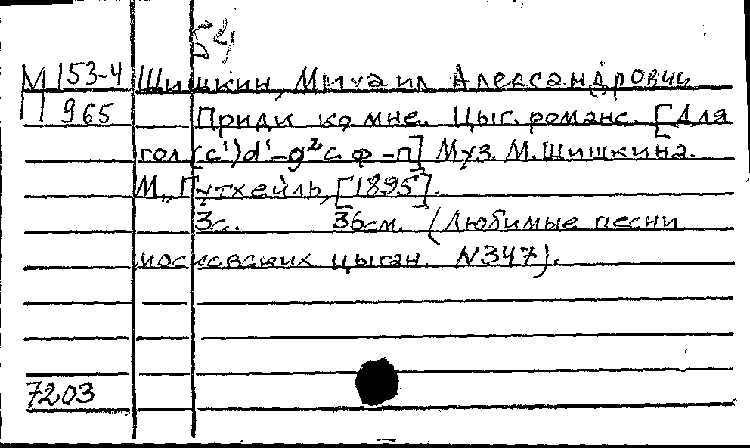 54
М 153-4 Шишкин, Михаил Александрович
П 965 Приди ко мне. Цыг. романс. [Для
гол. (c¹)d¹-g² с ф-п] Муз. М. Шишкина.
М., Гутхейль, [1895].
3с. 36см. (Любимые песни
московских цыган. N347).
7203